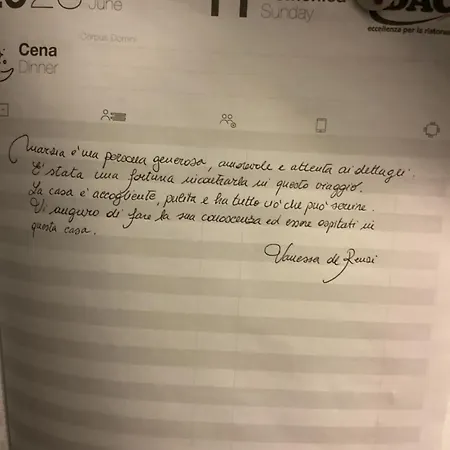 2023 June
11
Sunday
DAC
eccellenza per la ristora
Corpus Domini
Cena
Dinner
Marzia è una persona generosa, amorevole e attenta ai dettagli.
E' stata una fortuna incontrarla in questo viaggio.
La casa è accogliente, pulita e ha tutto ciò che può servire.
Vi auguro di fare la sua conoscenza ed essere ospitati in
questa casa.
Vanessa de Renzi